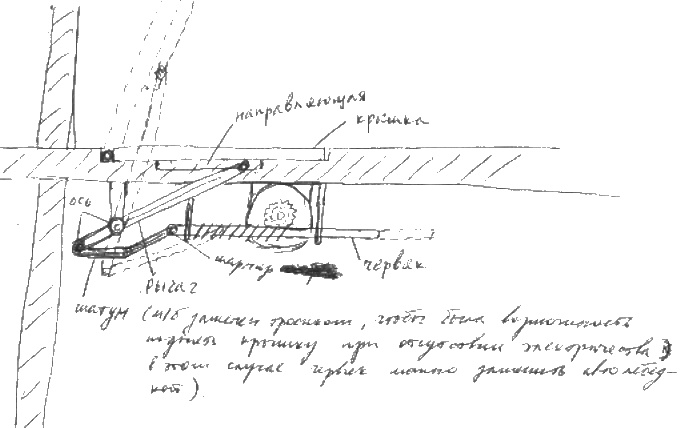 направляющая
крышка
ось
с
шарнир
червяк
рычаг
шатун (м/б заменён тросиком, чтобы была возможность
поднять крышку при отсутствии электричества
в этом случае червяк можно заменить автолебёд-
кой).